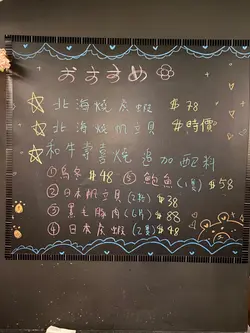 おすすめ
北海燒灰蝦 $78
北海燒帆立貝 $時價
和牛壽喜燒 追加配料
①烏冬 $48 ⑤鮑魚(1隻) $58
②日本帆立貝(2粒) $38
③黑毛豚肉(6片) $88
④日本灰蝦(2隻) $48